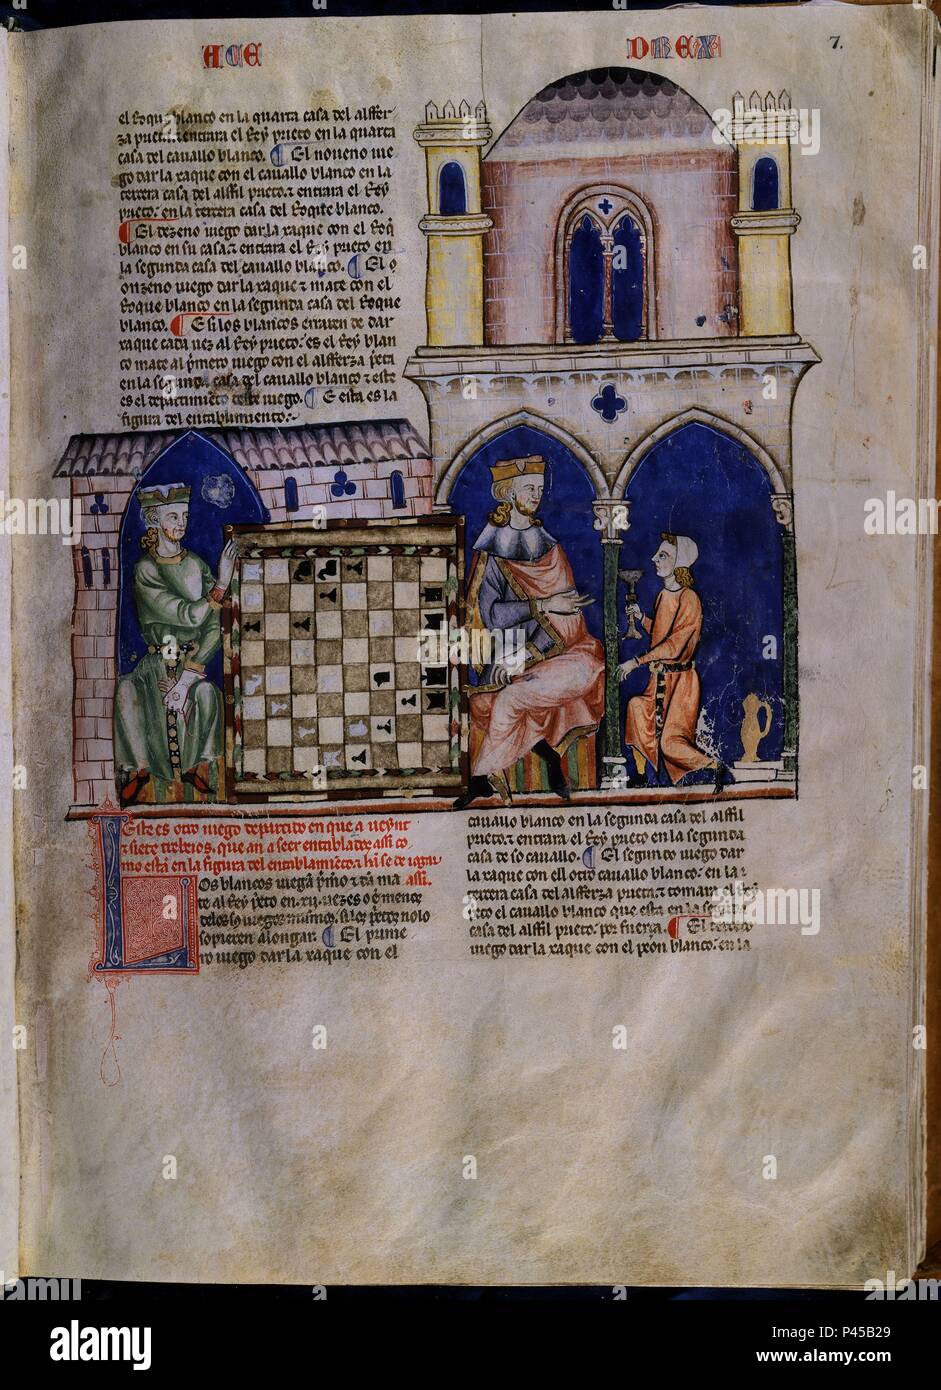 ACE DREX 7.
el Roque blanco en la quarta casa del alffer-
za prieta. entrara el Rey prieto en la quarta
casa del cauallo blanco. El noueno iue-
go dar la xaque con el cauallo blanco en la
tercera casa del alffil prieto. ⁊ entrara el Rey
prieto: en la tercera casa del Roque blanco.
El dezeno iuego dar la xaque con el Roq̃
blanco en su casa. ⁊ entrara el Rey prieto en
la segunda casa del cauallo blanco. El o
onzeno iuego dar la xaque ⁊ mate con el
Roque blanco en la segunda casa del Roque
blanco. E si los blancos erraren de dar
xaque cada uez al Rey prieto: es el Rey blan
co mate al p̃mero iuego con el alfferza p̃eta
en la segunda casa del cauallo blanco. ⁊ este
es el departimiento deste iuego. E esta es la
figura del entablamiento.
Este es otro iuego departido en que a ueynt
⁊ siete trebeios. que an a seer entablados assi co
mo esta en la figura del entablamiento. ⁊ han se de iogar
assi.
Los blancos iuegã p̃mero ⁊ dã ma
te al Rey p̃eto en .xij. uezes o en menos
delos sus iuegos mismos. si los prietos no lo
sopieren alongar. El prime
ro iuego dar la xaque con el
cauallo blanco en la segunda casa del alffil
prieto. ⁊ entrara el Rey prieto en la segunda
casa de so cauallo. El segundo iuego dar
la xaque con ell otro cauallo blanco: en la
tercera casa del alfferza prieta. ⁊ tomara el Rey
p̃eto el cauallo blanco que esta en la segunda
casa del alffil prieto: por fuerça. El tercero
iuego dar la xaque con el peon blanco: en la
alamy
Image ID: P45B29
www.alamy.com